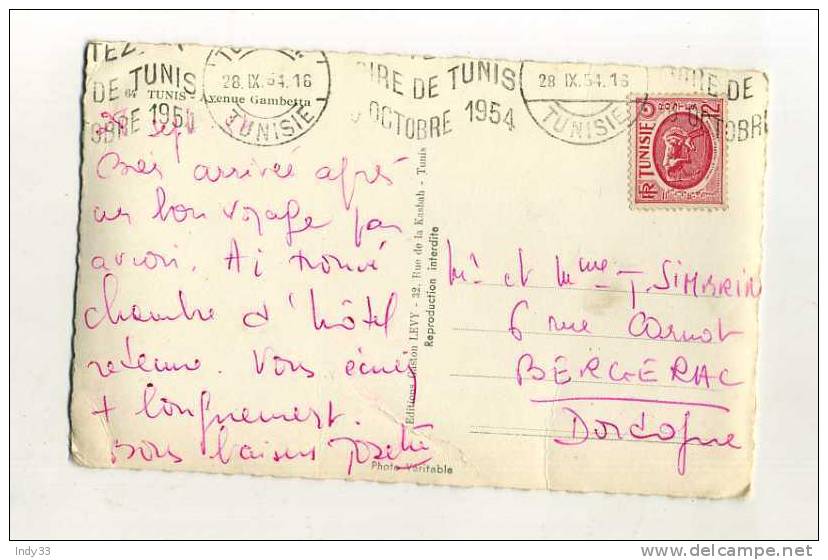 DE TUNIS
OBRE 1954
28 IX.54.16
TUNISIE
OIRE DE TUNIS
OCTOBRE 1954
28 IX.54.16
TUNISIE
OIRE DE
OCTOBRE
64 TUNIS - Avenue Gambetta
TUNISIE
RF
Bien arrivée après
un bon voyage par
avion. Ai trouvé
chambre d'hôtel
retenue. Vous écrirai
+ longuement.
Bons baisers Josette
Editions Gaston LEVY - 32, Rue de la Kasbah - Tunis
Reproduction interdite
Photo Véritable
Mr et Mme T. SIMBRIN
6 rue Carnot
BERGERAC
Dordogne
Indy33